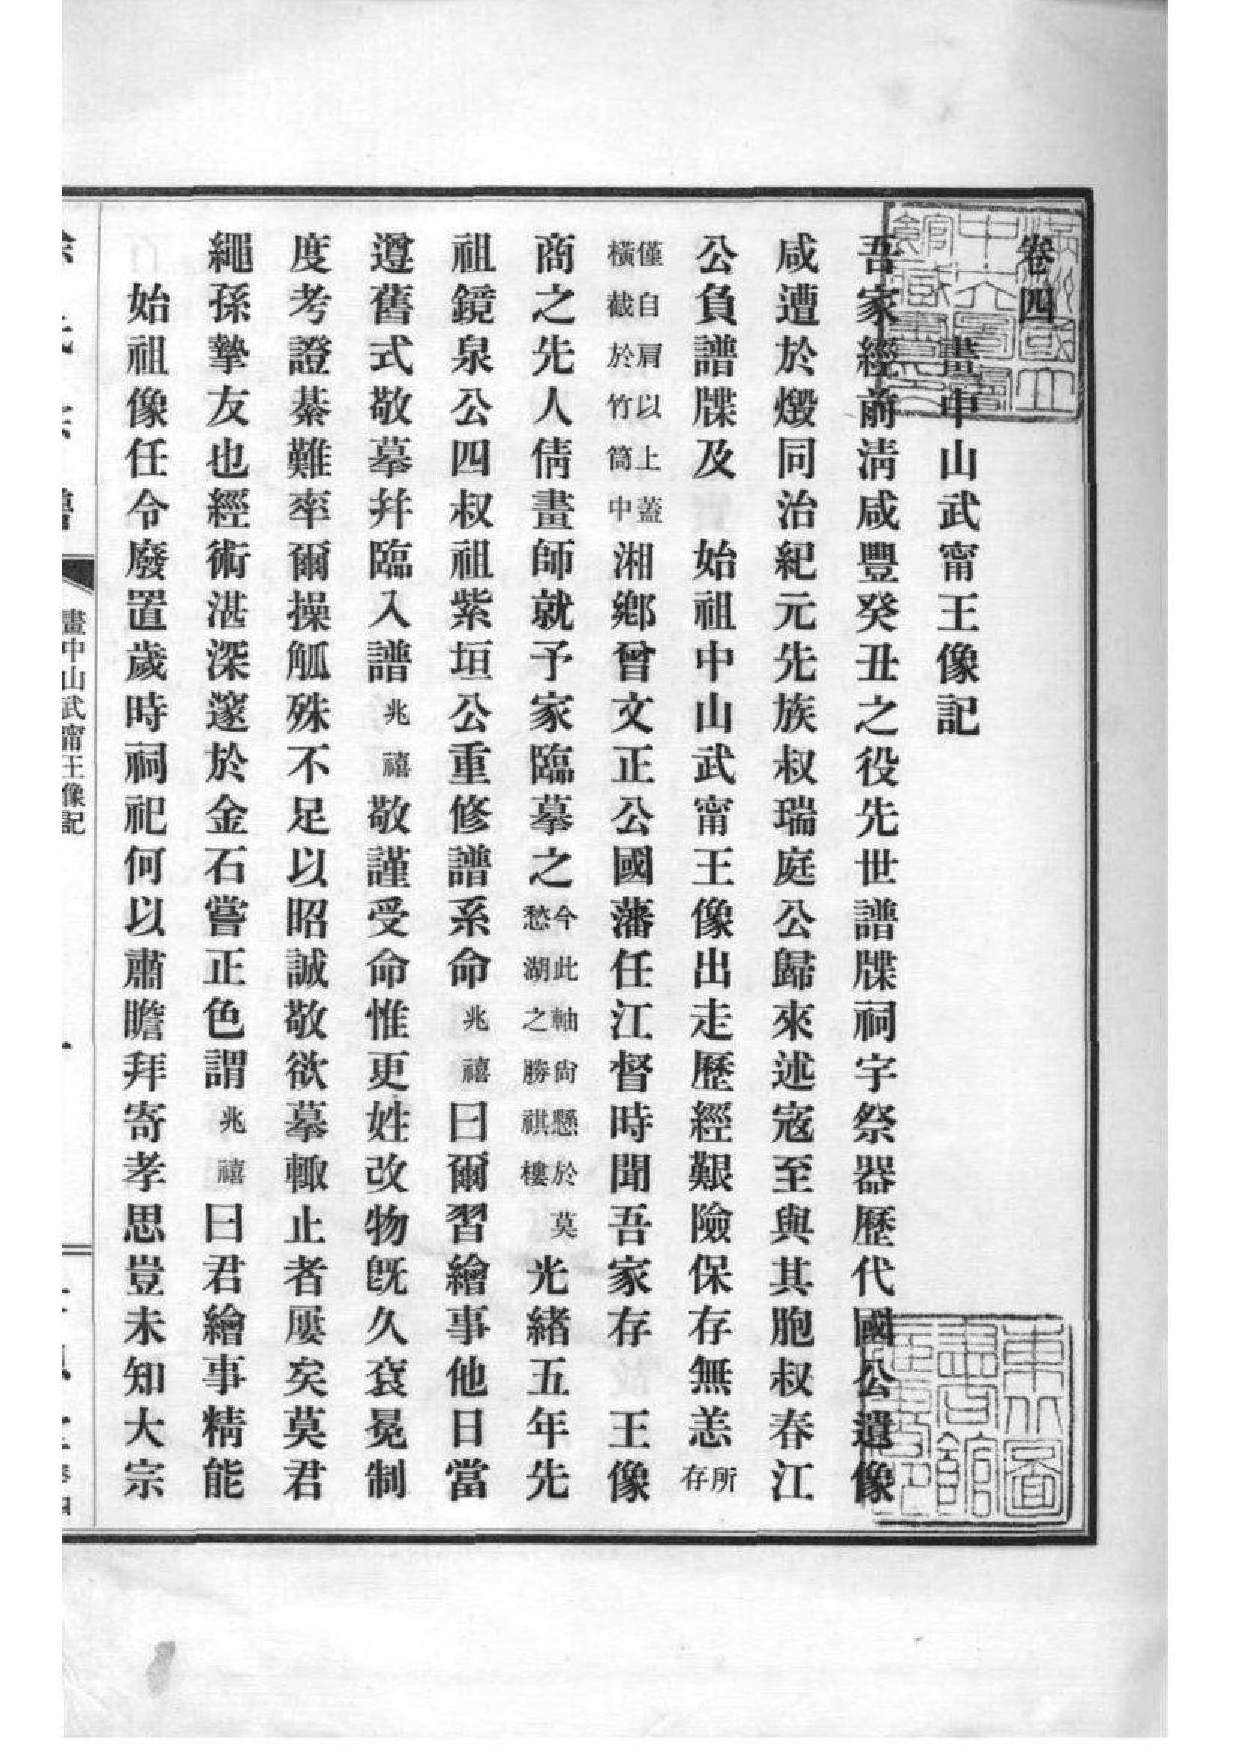 卷四
畫中山武甯王像記
吾家經前清咸豐癸丑之役先世譜牒祠宇祭器歷代國公遺像
咸遭於燬同治紀元先族叔瑞庭公歸來述寇至與其胞叔春江
公負譜牒及　始祖中山武甯王像出走歷經艱險保存無恙所存
僅自肩以上蓋橫截於竹筒中湘鄉曾文正公國藩任江督時聞吾家存　王像
商之先人倩畫師就予家臨摹之今此軸尙懸於莫愁湖之勝祺樓光緒五年先
祖鏡泉公四叔祖紫垣公重修譜系命兆禧曰爾習繪事他日當
遵舊式敬摹幷臨入譜兆禧敬謹受命惟更姓改物旣久袞冕制
度考證綦難率爾操觚殊不足以昭誠敬欲摹輙止者屢矣莫君
繩孫摯友也經術湛深邃於金石嘗正色謂兆禧曰君繪事精能
始祖像任令廢置歲時祠祀何以肅瞻拜寄孝思豈未知大宗
畫中山武甯王像記